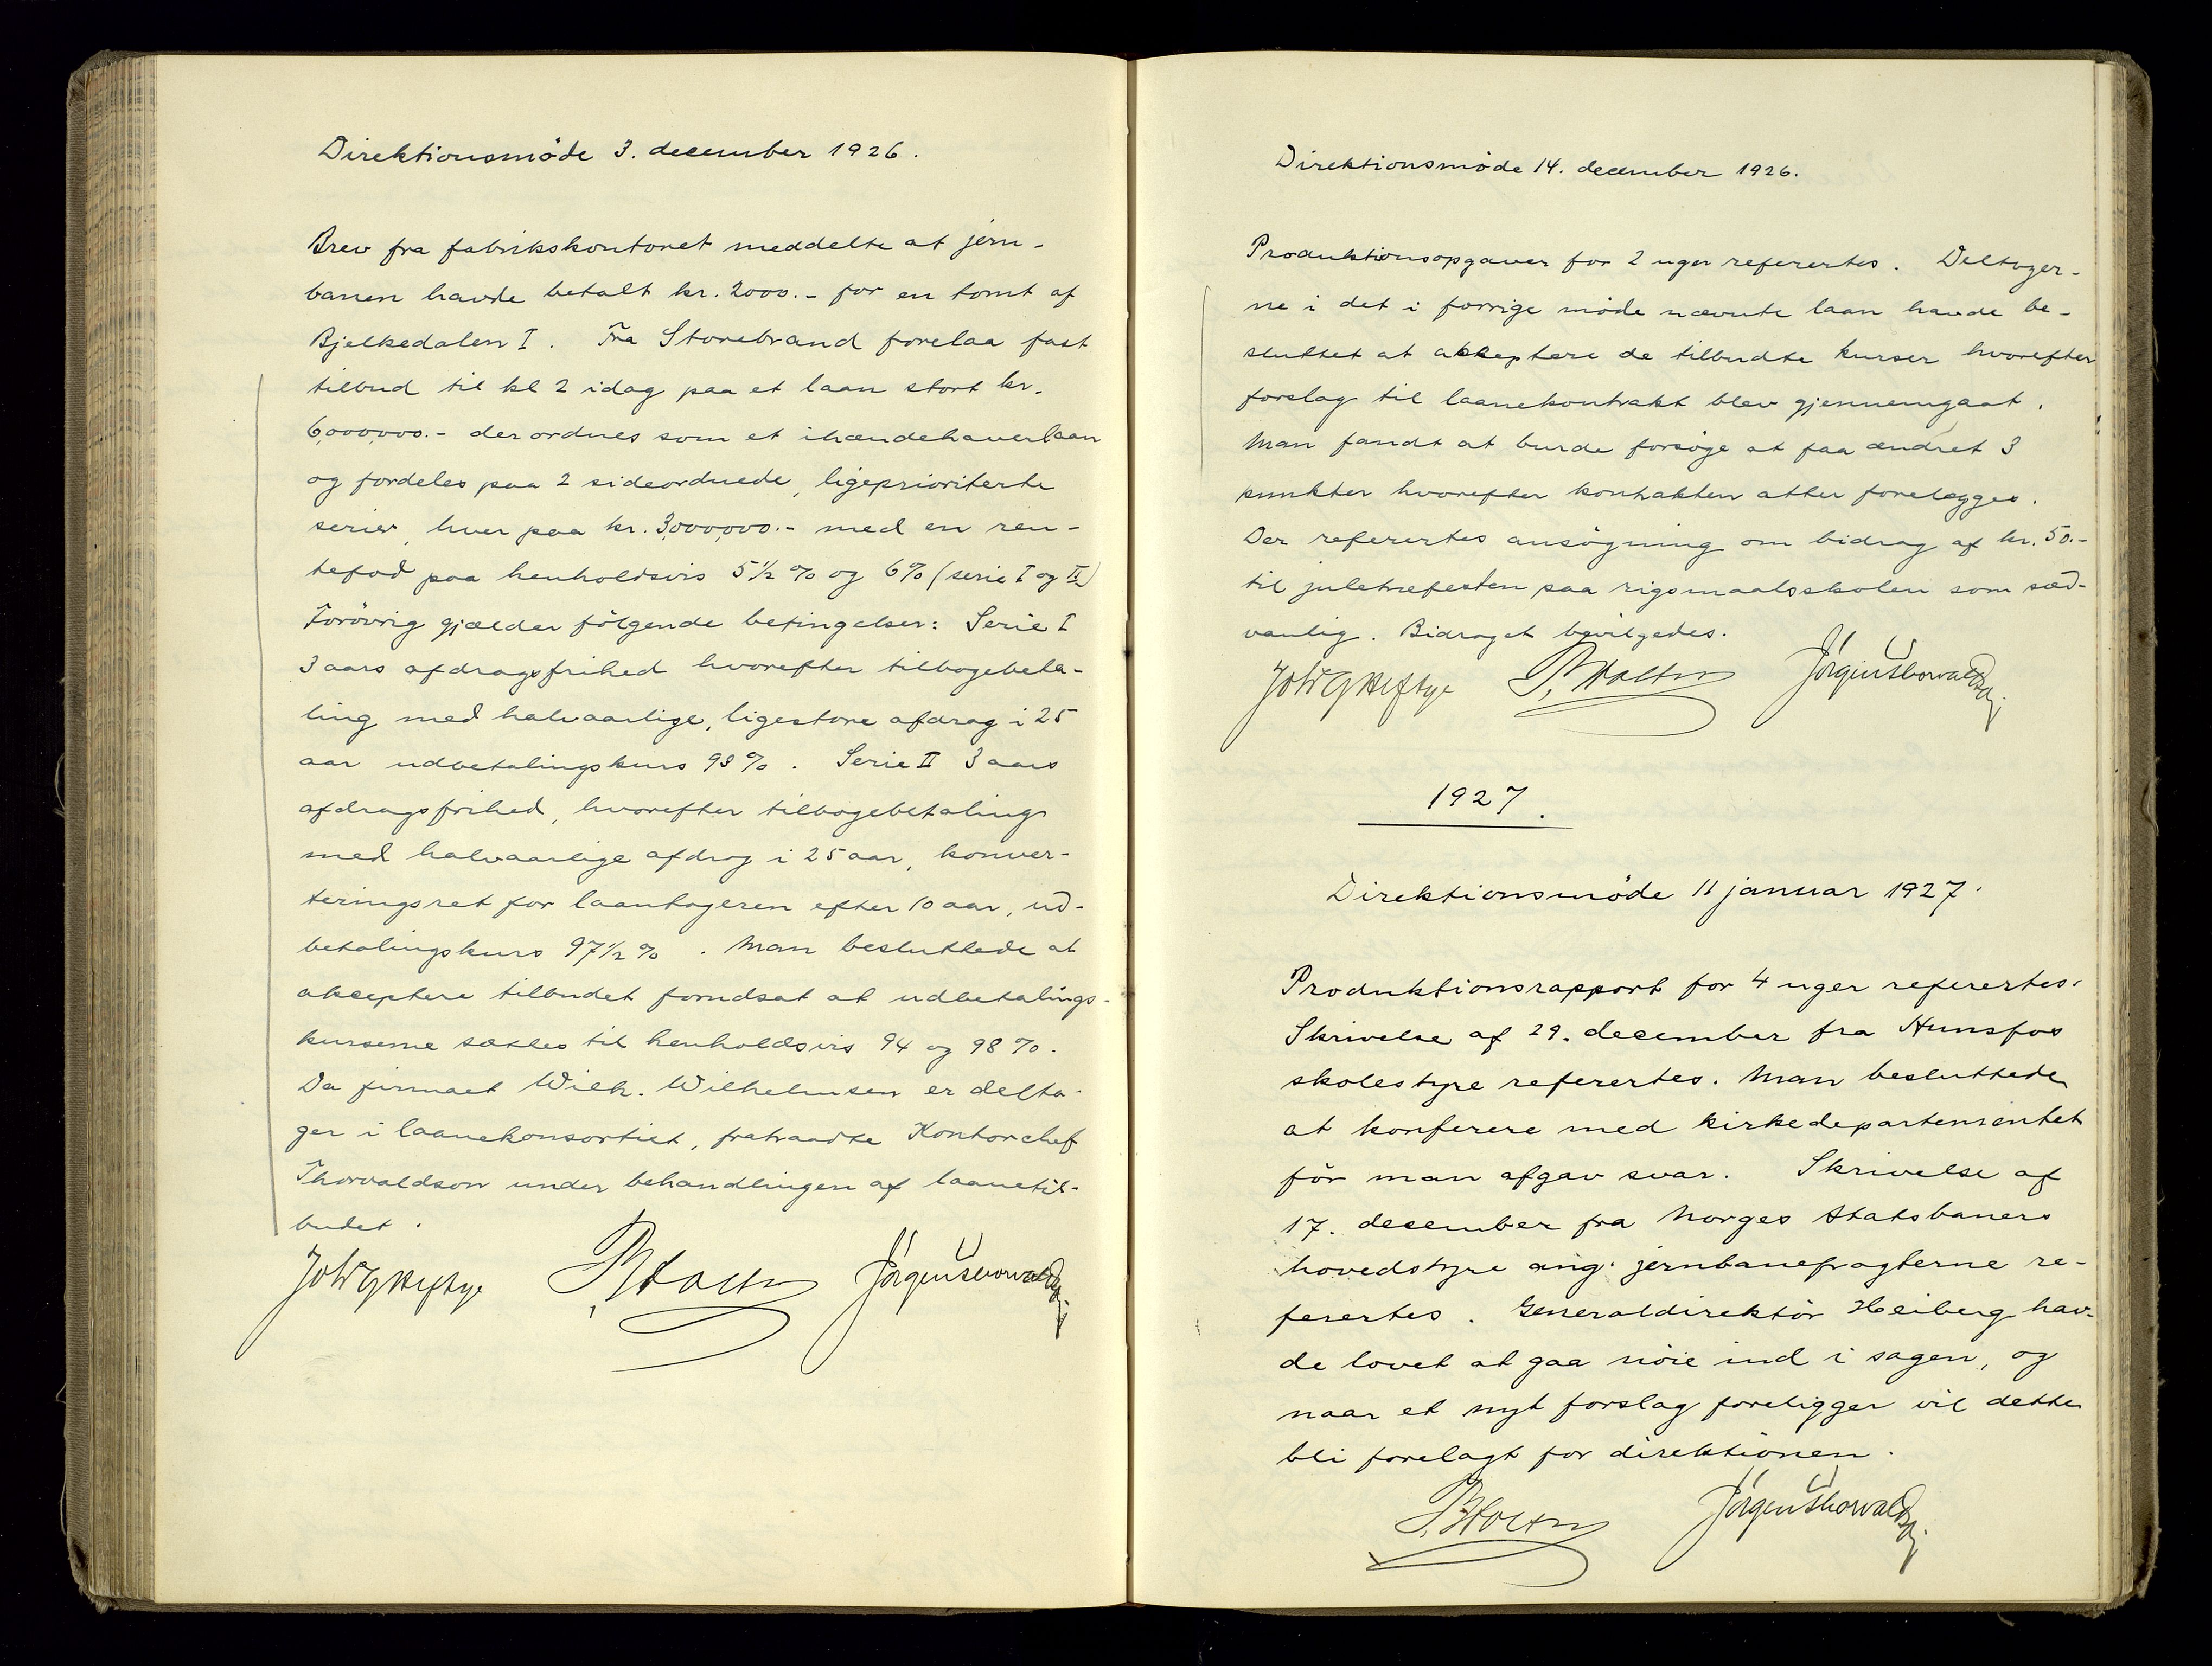 Direktionsmöde 3. december 1926.
Brev fra fabrikskontoret meddelte at jern-
banen havde betalt kr. 2000.- for en tomt af
Bjelkedalen I. Fra Storebrand forelaa fast
tilbud til kl 2 idag paa et laan stort kr.
6,000,000.- der ordnes som et ihændehaverlaan
og fordeles paa 2 sideordnede, ligeprioriterte
serier, hver paa kr. 3,000,000.- med en ren-
tefod paa henholdsvis 5½% og 6% (serie I og II)
Forövrig gjælder fölgende betingelser: Serie I
3 aars afdragsfrihed hvorefter tilbagebeta-
ling med halvaarlige, ligestore afdrag i 25
aar udbetalingskurs 93%. Serie II 3 aars
afdragsfrihed, hvorefter tilbagebetaling
med halvaarlige afdrag i 25 aar, konver-
teringsret for laantageren efter 10 aar, ud-
betalingskurs 97½%. Man besluttede at
akceptere tilbudet forudsat at udbetalings-
kurserne sættes til henholdsvis 94 og 98%.
Da firmaet Wilh. Wilhelmsen er delta-
ger i laanekonsortiet, fratraadte Kontorchef
Thorvaldson under behandlingen af laanetil-
budet.
Joh Heftye P. Holtn Jörgen Thorvaldson
Direktionsmöde 14. december 1926.
Produktionsopgaver for 2 uger referertes. Deltager-
ne i det i forrige möde nævnte laan havde be-
sluttet at akkeptere de tilbudte kurser hvorefter
forslag til laanekontrakt blev gjennemgaat.
Man fandt at burde forsöge at faa ændret 3
punkter hvorefter kontrakten atter forelægges.
Der referertes ansögning om bidrag af kr. 50.-
til juletræfesten paa rigsmaalsskolen som sæd-
vanlig. Bidraget bevilgedes.
Joh Heftye P. Holtn Jörgen Thorvaldson
1927.
Direktionsmöde 11 januar 1927.
Produktionsrapport for 4 uger referertes.
Skrivelse af 29. december fra Hunsfos
skolestyre referertes. Man besluttede
at konferere med kirkedepartementet
för man afgav svar. Skrivelse af
17. december fra Norges Statsbaners
hovedstyre ang. jernbanefragterne re-
ferertes. Generaldirektör Heiberg hav-
de lovet at gaa nöie ind i sagen, og
naar et nyt forslag foreligger vil dette
bli forelagt for direktionen.
P. Holtn Jörgen Thorvaldson